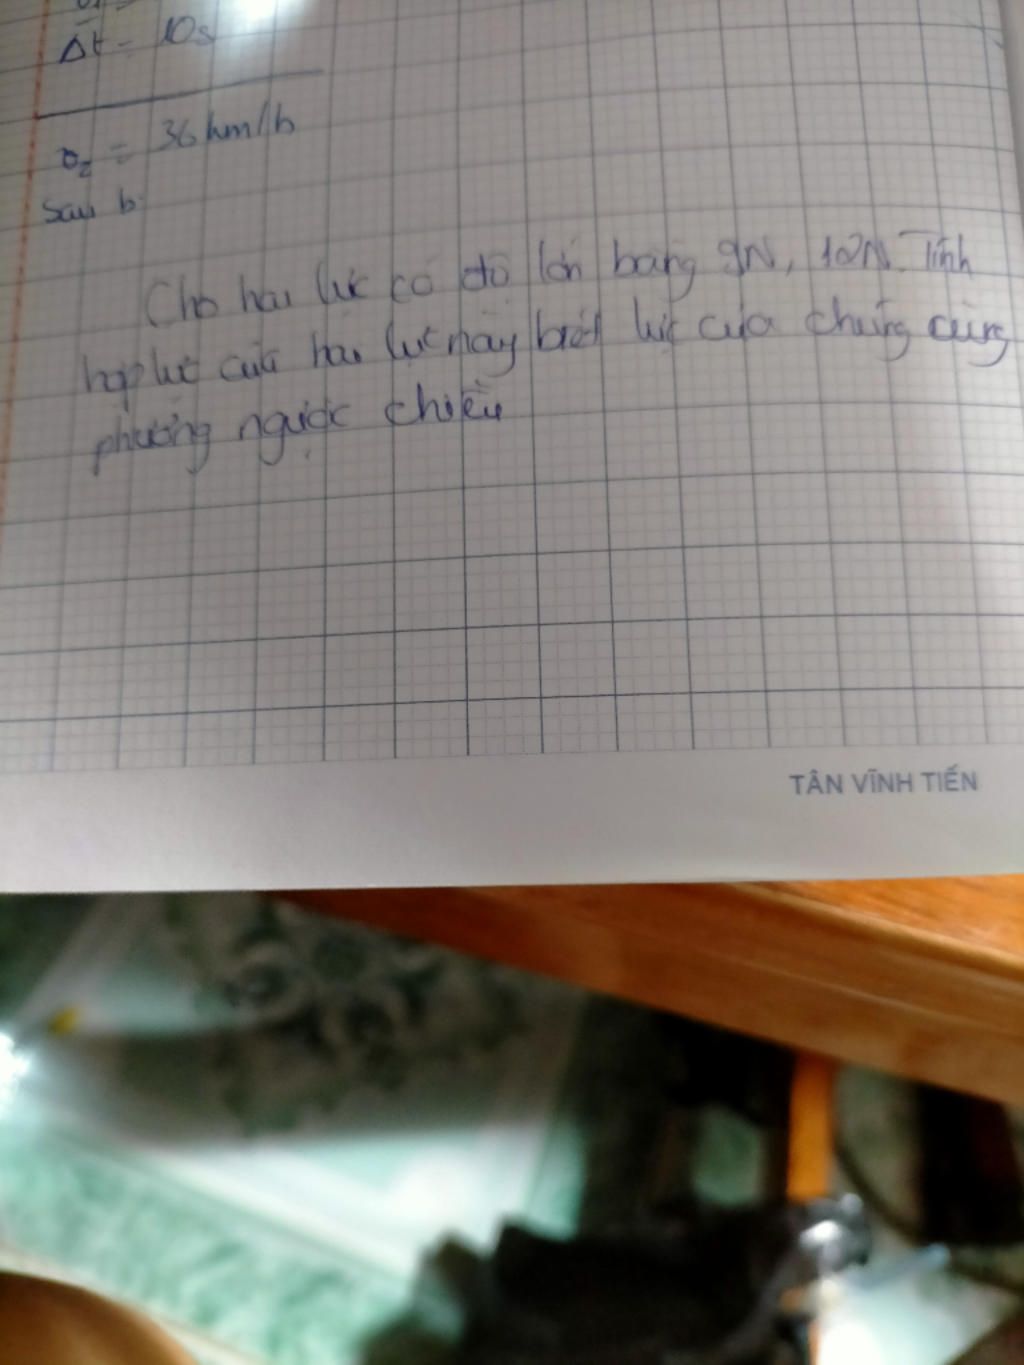 Δt = 10s
v₂ = 36 km/h
Sau b:
Cho hai lực có độ lớn bằng 9N, 12N. Tính
hợp lực của hai lực này biết lực của chúng cùng
phương ngược chiều
TÂN VĨNH TIẾN